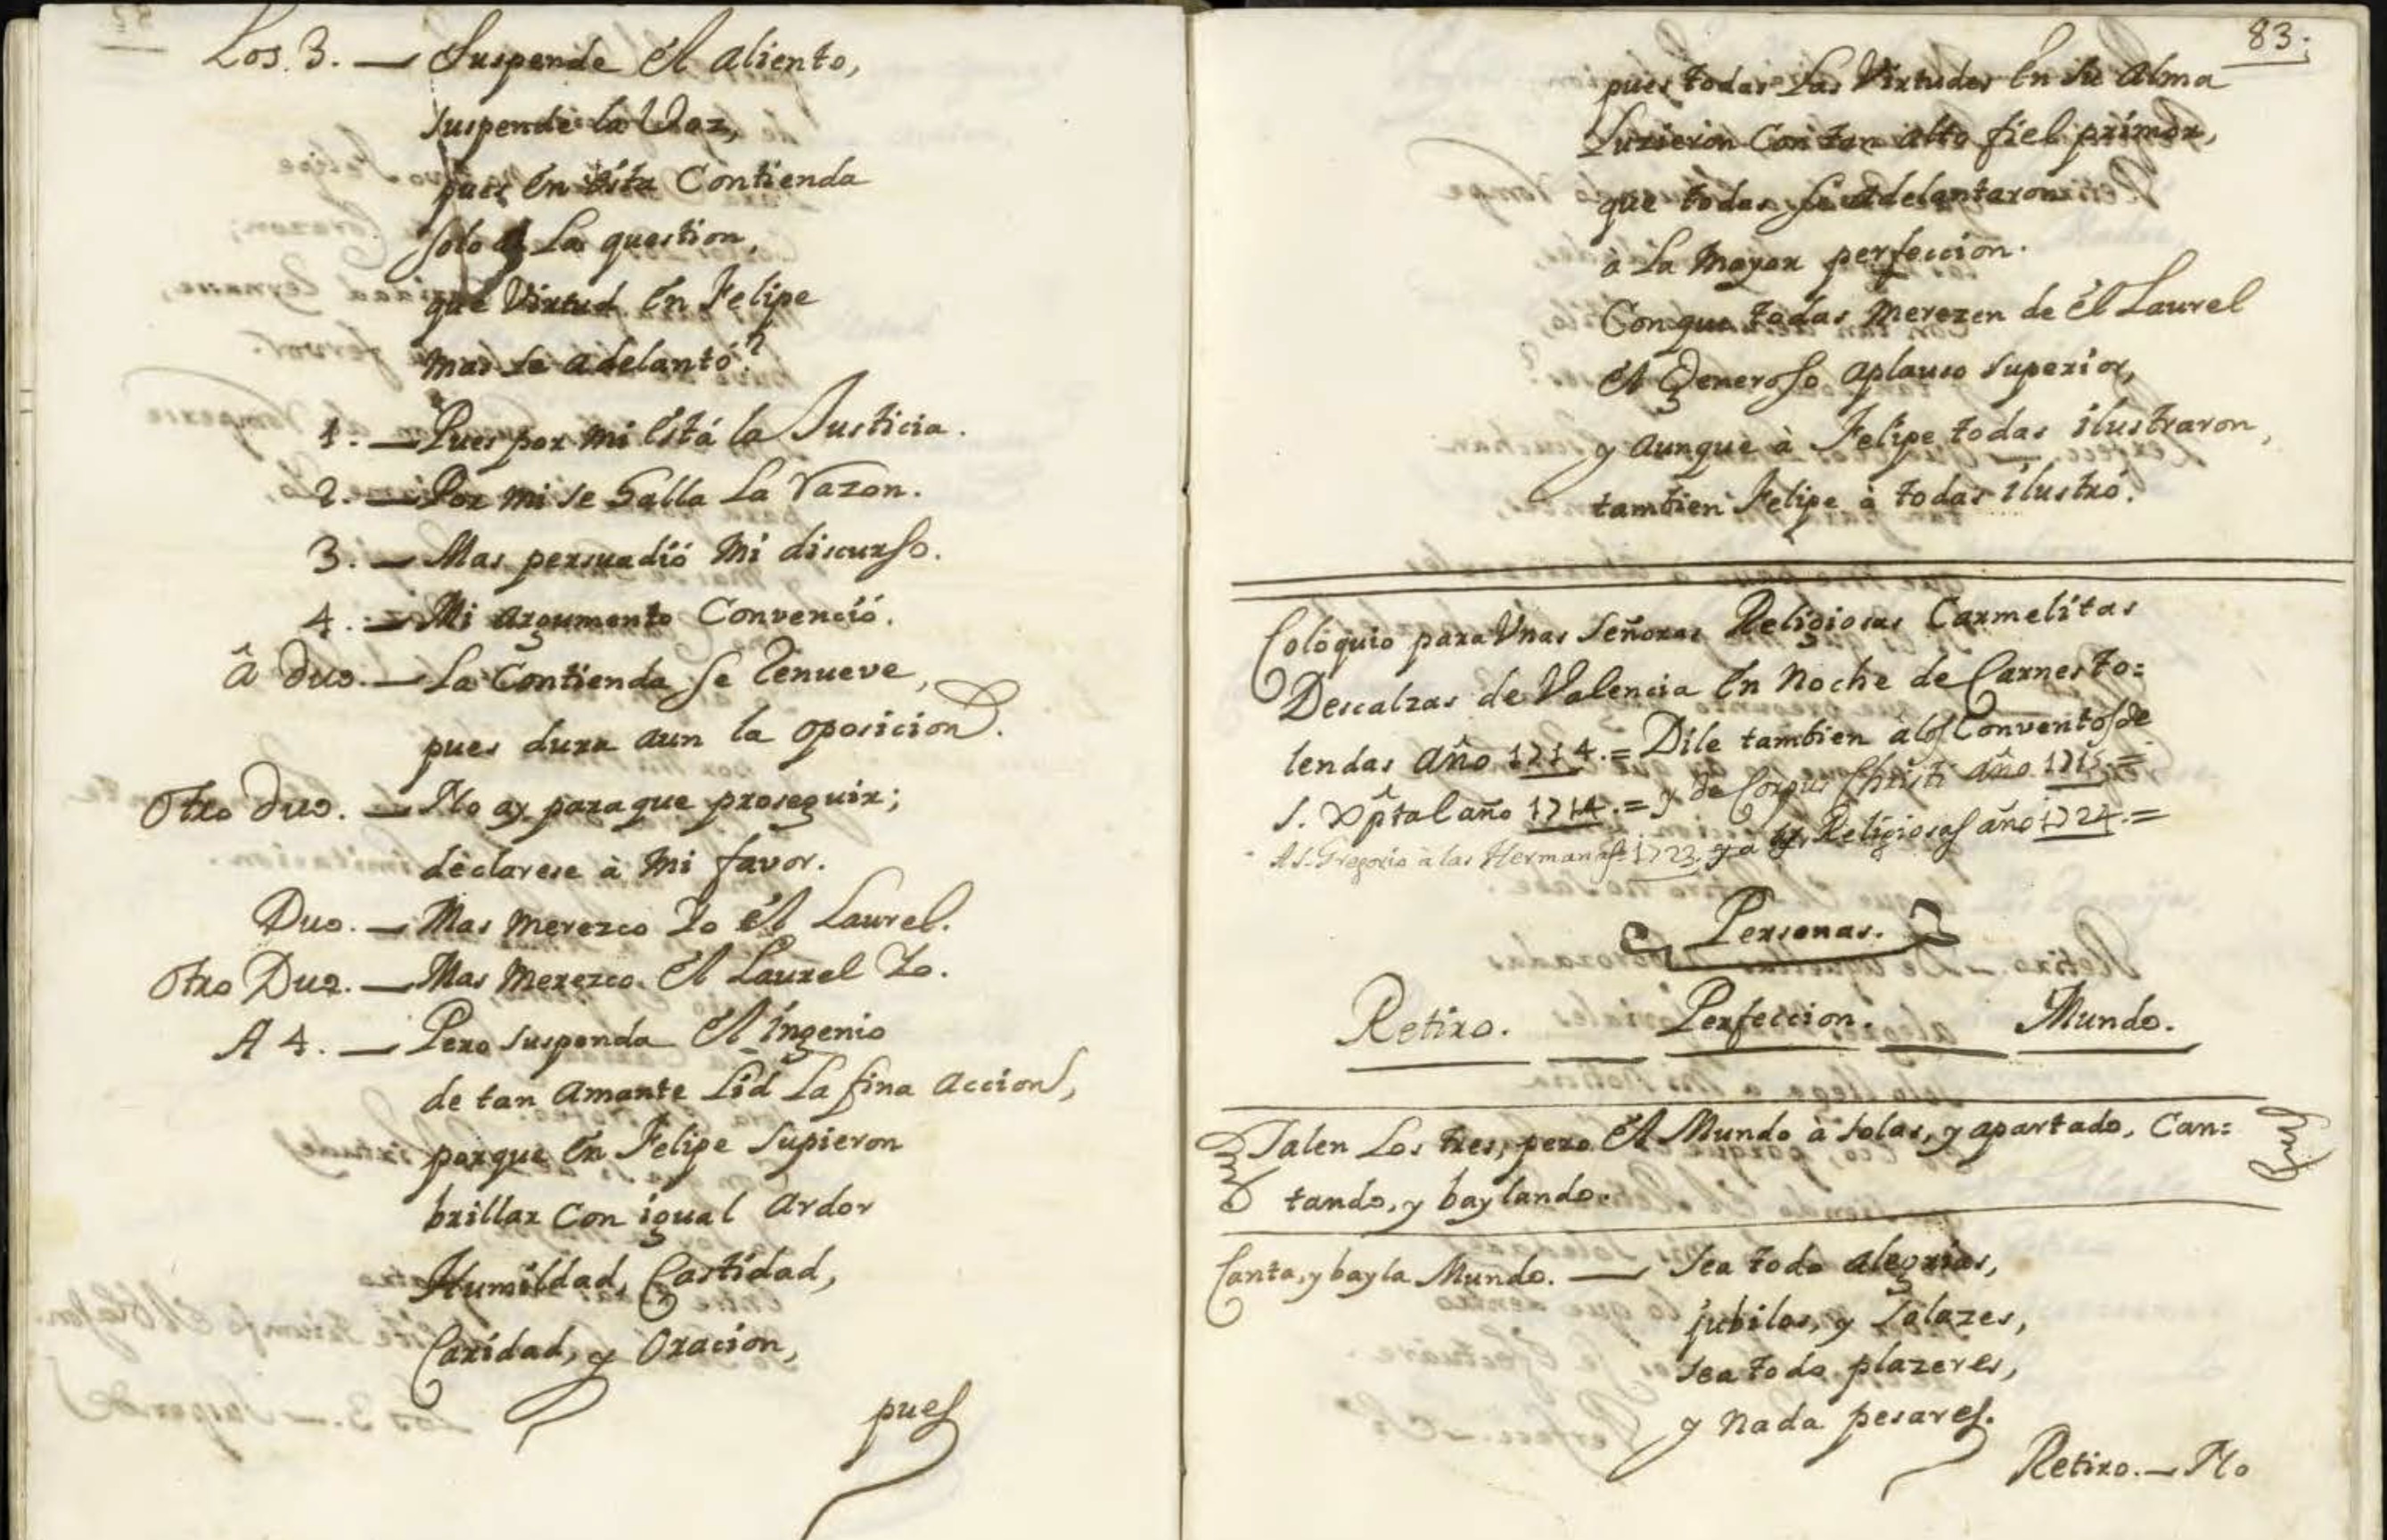 Los. 3. — Suspende él aliento,
suspende la Voz,
pues én ésta Contienda
solo és La question,
què Virtud én Felipe
mas se adelantó?
1. — Pues por mi está la Justicia.
2. — Por mi se halla La razon.
3. — Mas persuadió mi discurso.
4. — Mi argumento Convenció.
â Duo. — La Contienda se renueve,
pues dura aun la oposicion.
Otro Duo. — No ay paraque proseguir;
declarese à mi favor.
Duo. — Mas merezco Yo él Laurel.
Otro Duo. — Mas merezco él Laurel Yo.
A 4. — Pero suspenda él ingenio
de tan amante Lid La fina accion,
porque én Felipe supieron
brillar con igual ardor
Humildad, Castidad,
Caridad, y Oracion,
pues
83.
pues todas Las Virtudes én su alma
Luzieron Con tan alto fiel primor,
que todas se adelantaron
à La mayor perfeccion.
Conque todas merezen de él Laurel
él Generoso aplauso superior,
y aunque à Felipe todas ilustraron,
tambien Felipe à todas ilustró.
Coloquio para Unas Señoras Religiosas Carmelitas
Descalzas de Valencia én Noche de Carnesto=
lendas año 1714. = Dile tambien à los Conventos de
S. Xptal año 1714. = y de Corpus Christi año 1715. =
A S. Gregorio à las Hermanas 1723 y a las Religiosas año 1724. =
Personas.
Retiro. Perfeccion. Mundo.
Salen Los tres, pero él Mundo à solas, y apartado, Can=
tando, y baylando.
Canta, y bayla Mundo. — Sea todo alegrias,
jubilos, y Solazes,
sea todo plazeres,
y nada pesares.
Retiro. — No